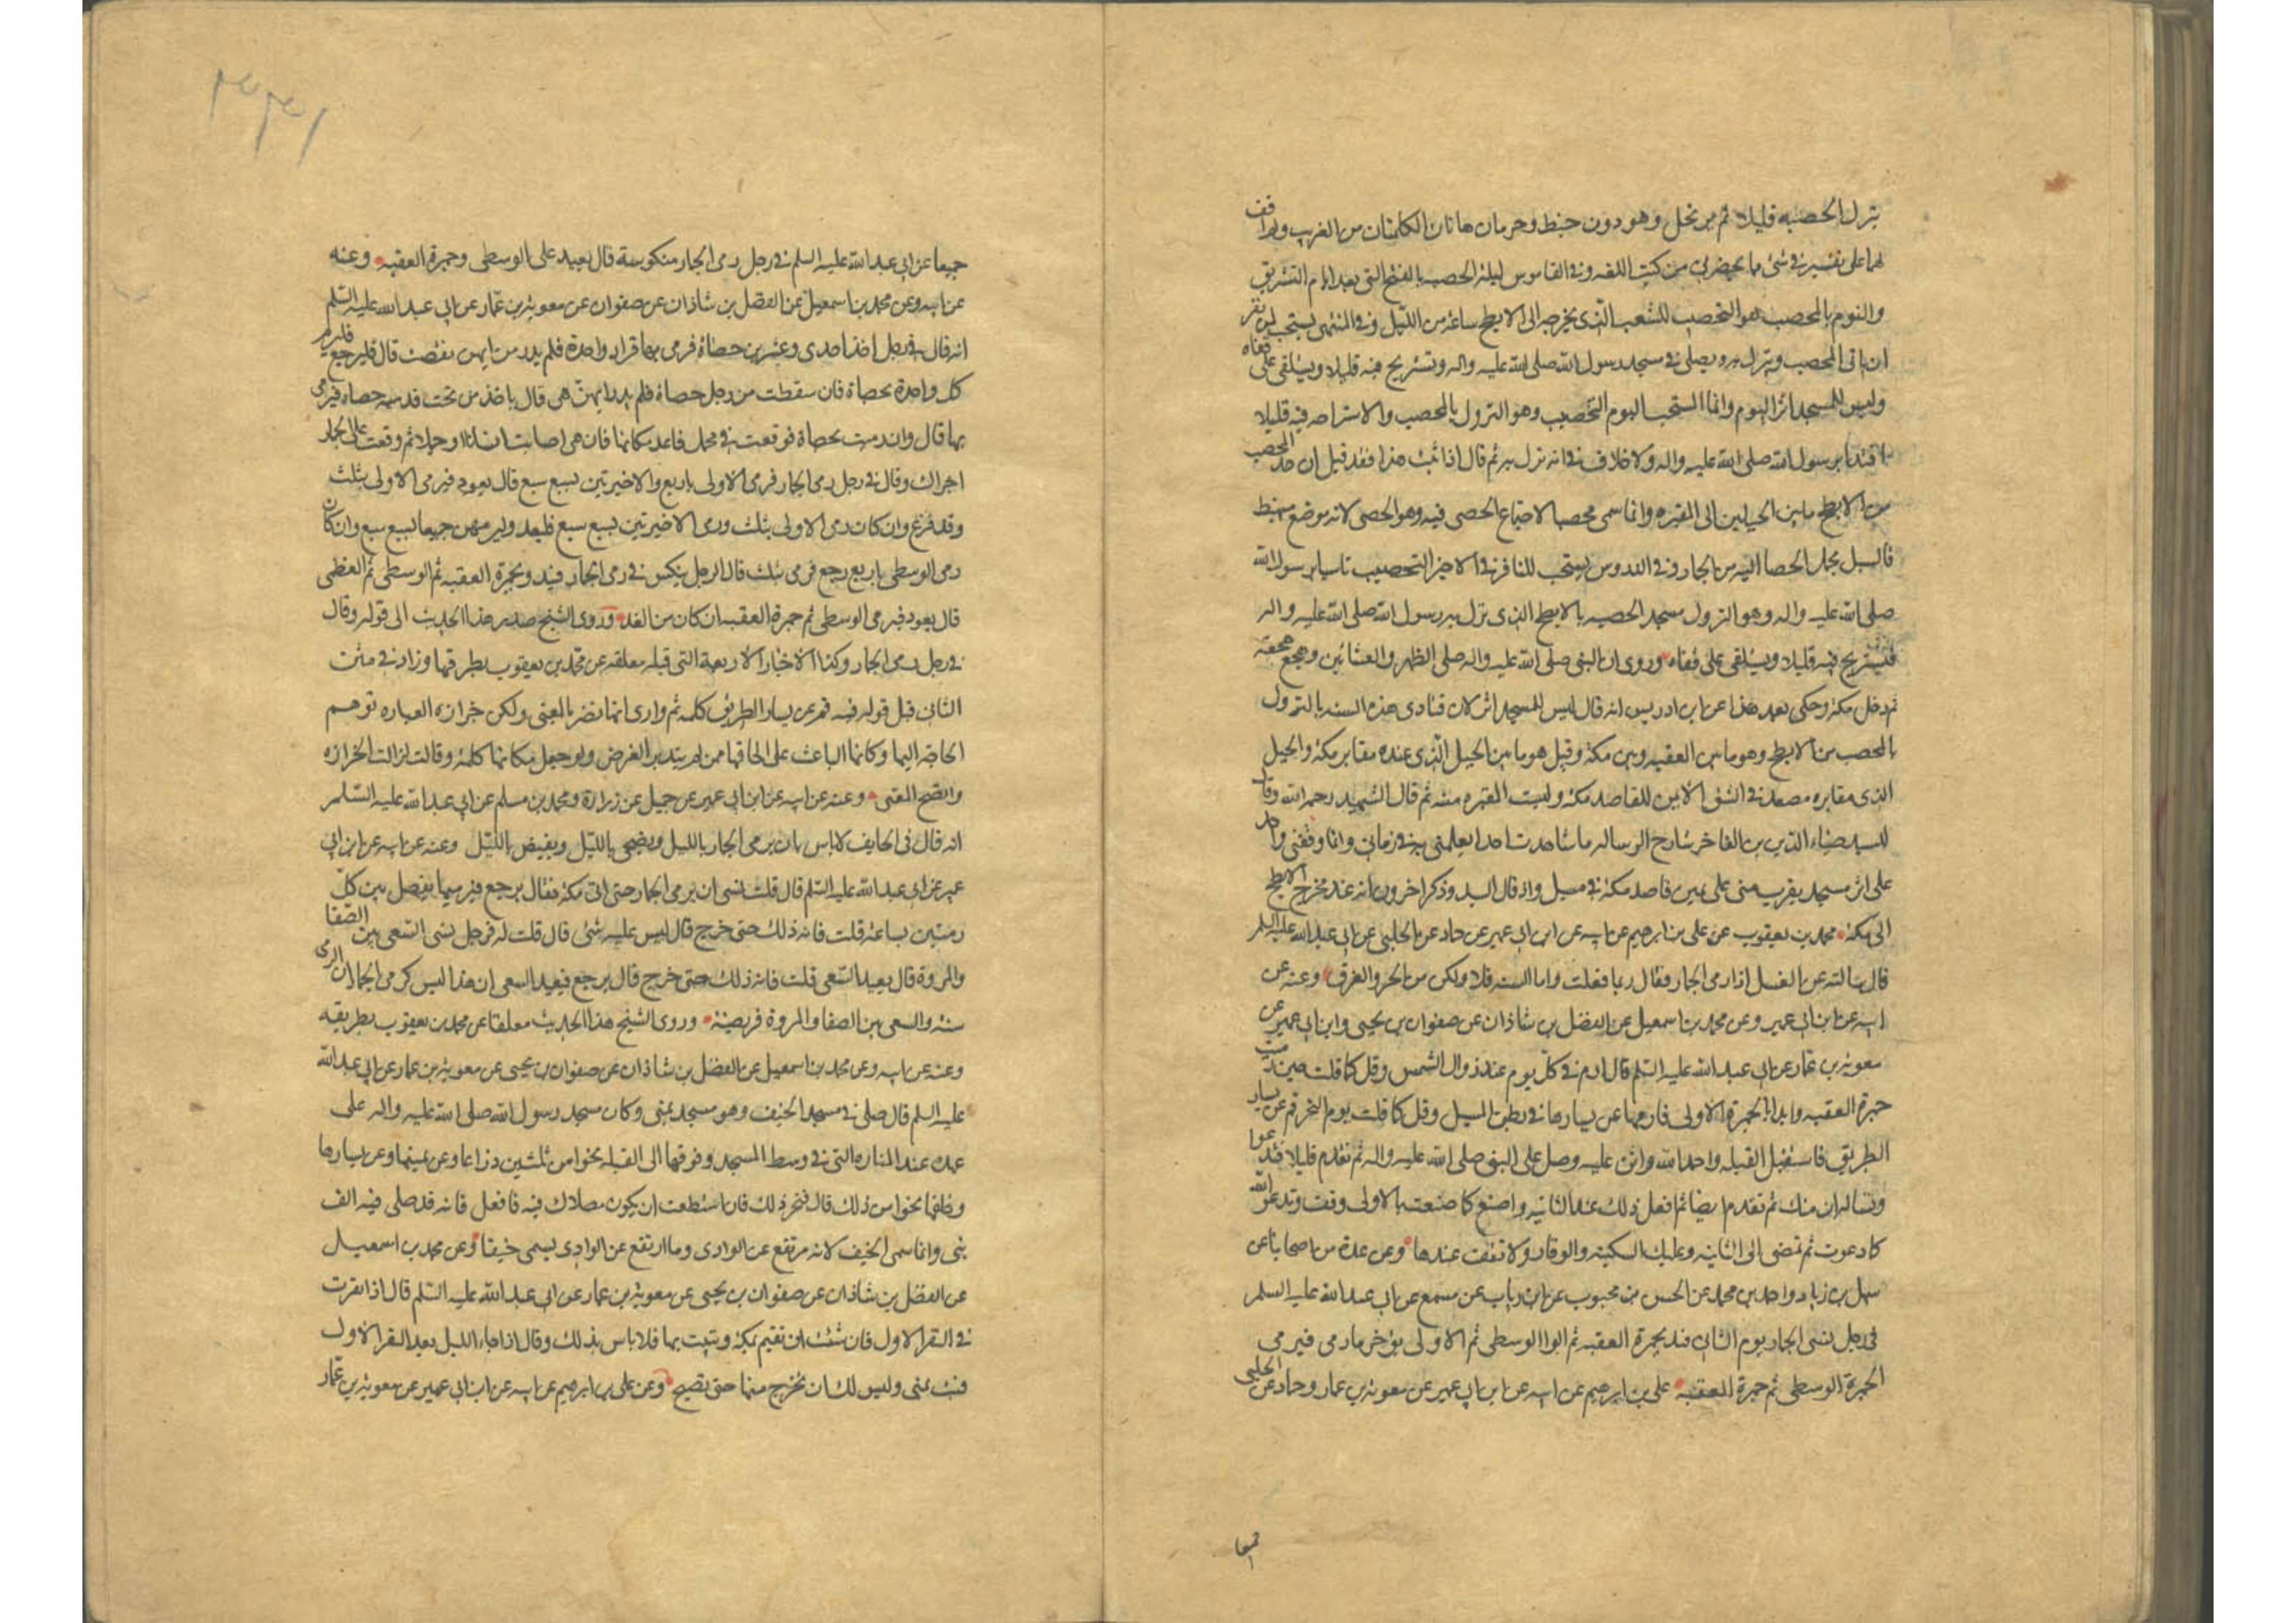 ينزل الحصبه قليلا ثم يرتحل وهو دون خبط وحرمان هاتان الكلمتان من الغريب ولم اقف
لهما على تفسير في شئ مما يحضرني من كتب اللغه وفي القاموس ليلة الحصبه بالفتح التي بعد ايام التشريق
والنوم بالمحصب هو التحصب للشعب الذي مخرجه الى الابطح ساعة من الليل وفي المنتهى يستحب لمن نفر
ان ياتي المحصب وينزل به ويصلي في مسجد رسول الله صلى الله عليه واله ويستريح فيه قليلا ويستلقي على قفاه
وليس للمسجد اثر اليوم وانما المستحب اليوم التحصيب وهو النزول بالمحصب والاستراحه فيه قليلا
اقتداء برسول الله صلى الله عليه واله ولا خلاف في انه نزل به ثم قال اذا ثبت هذا فقد قيل ان حد المحصب
من الابطح ما بين الجبلين الى المقبره وانما سمي محصبا لاجتماع الحصى فيه وهو الحصى لانه موضع منهبط
فالسيل يحمل الحصا اليه من الجمار وفي الدروس يستحب للنافر في الاخير التحصيب تاسيا برسول الله
صلى الله عليه واله وهو النزول مسجد الحصبه بالابطح الذي نزل به رسول الله صلى الله عليه واله
فيستريح فيه قليلا ويستلقي على قفاه وروي ان النبي صلى الله عليه واله صلى الظهر والعشائين وهجع هجعة
ثم دخل مكة وحكى بعد هذا عن ابن ادريس انه قال ليس للمسجد اثر الان فتادى هذه السنه بالنزول
بالمحصب من الابطح وهو ما بين العقبه وبين مكة وقيل هو ما بين الجبل الذي عنده مقابر مكة والجبل
الذي مقابره مصعدا في الشق الايمن للقاصد مكة وليست المقبره منه ثم قال الشهيد رحمه الله وقال
السيد ضياء الدين بن الفاخر شارح الرساله ما شاهدت احدا يعلمني به في زماني وانما وقفني واحد
على اثر مسجد بقرب منى على يمين قاصد مكة في مسيل واد قال السيد وذكر اخرون انه عند مخرج الابطح
الى مكة محمد بن يعقوب عن علي بن ابرهيم عن ابيه عن ابن ابي عمير عن حماد عن الحلبي عن ابي عبد الله عليه السلم
قال سالته عن الغسل اذا رمى الجمار فقال ربما فعلت واما السنه فلا ولكن من الحر والعرق وعنه عن
ابيه عن ابن ابي عمير وعن محمد بن اسمعيل عن الفضل بن شاذان عن صفوان بن يحيى وابن ابي عمير عن
معوية بن عمار عن ابي عبد الله عليه السلم قال ارم في كل يوم عند زوال الشمس وقل كما قلت حين رميت
جمرة العقبه وابدا بالجمرة الاولى فارمها عن يسارها في بطن المسيل وقل كما قلت يوم النحر قم عن يسار
الطريق فاستقبل القبله واحمد الله واثن عليه وصل على النبي صلى الله عليه واله ثم تقدم قليلا فتدعوا
وتساله ان منك ثم تقدم ايضا ثم افعل ذلك عند الثانيه واصنع كما صنعت بالاولى وقف وتدعو الله
كما دعوت ثم تمضي الى الثالثه وعليك السكينه والوقار ولا تقف عندها وعن عدة من اصحابنا عن
سهل بن زياد واحمد بن محمد عن الحسن بن محبوب عن ابن رياب عن مسمع عن ابي عبد الله عليه السلم
في رجل نسي الجمار يوم الثاني فبدا بجمرة العقبه ثم الوسطى ثم الاولى يؤخر ما رمى فيرمي
الجمرة الوسطى ثم جمرة العقبه علي بن ابرهيم عن ابيه عن ابن ابي عمير عن معوية بن عمار وحماد عن الحلبي
جميعا
جميعا عن ابي عبد الله عليه السلم في رجل رمى الجمار منكوسة قال يعيد على الوسطى وجمرة العقبه وعنه
عن ابيه وعن محمد بن اسمعيل عن الفضل بن شاذان عن صفوان عن معوية بن عمار عن ابي عبد الله عليه السلم
انه قال في رجل اخذ احدى وعشرين حصاة فرمى بها فزاد واحدة فلم يدر من ايهن نقصت قال فليرجع فليرم
كل واحدة بحصاة فان سقطت من رجل حصاة فلم يدر ايهن هي قال ياخذ من تحت قدميه حصاه فيرمي
بها قال وان رميت بحصاة فوقعت في محمل فاعد مكانها فان هي اصابت انسانا او جملا ثم وقعت على الجمار
اجزاك وقال في رجل رمى الجمار فرمى الاولى باربع والاخيرتين بسبع سبع قال يعود فيرمي الاولى بثلث
وقد فرغ وان كان رمى الاولى بثلث ورمى الاخيرتين بسبع سبع فليعد وليرمهن جميعا بسبع سبع وان كان
رمى الوسطى باربع رجع فرمى بثلث قال الرجل ينكس في رمي الجمار فيبدو بجمرة العقبه ثم الوسطى ثم العظمى
قال يعود فيرمي الوسطى ثم جمرة العقبه ان كان من الغد وروى الشيخ صدر هذا الحديث الى قوله وقال
في رجل رمى الجمار وكذا الاخبار الاربعة التي قبله معلقه عن محمد بن يعقوب بطرقها وزاد في متن
الثاني قبل قوله فيه قم عن يسار الطريق كلمه ثم وارى انها تضر بالمعنى ولكن حزازة العباره توهم
الحاجه اليها وكانها الباعث على الحاقها ممن لم يتدبر الغرض ولو جعل مكانها كلمة وقالت لزالت الحزازه
واتضح المعنى وعنه عن ابيه عن ابن ابي عمير عن جميل عن زرارة ومحمد بن مسلم عن ابي عبد الله عليه السلم
انه قال في الخايف لا باس بان يرمي الجمار بالليل ويضحي بالليل ويفيض بالليل وعنه عن ابيه عن ابن ابي
عمير عن ابي عبد الله عليه السلم قال قلت نسي ان يرمي الجمار حتى اتى مكة فقال يرجع فيرميها يفصل بين كل
رميتين بساعة قلت فاته ذلك حتى خرج قال ليس عليه شئ قال قلت له فرجل نسي السعي بين الصفا
والمروة قال يعيد السعي قلت فاته ذلك حتى خرج قال يرجع فيعيد السعي ان هذا ليس كرمي الجمار ان الرمي
سنة والسعي بين الصفا والمروة فريضة وروى الشيخ هذا الحديث معلقا عن محمد بن يعقوب بطريقه
وعنه عن ابيه وعن محمد بن اسمعيل عن الفضل بن شاذان عن صفوان بن يحيى عن معوية بن عمار عن ابي عبد الله
عليه السلم قال صلى في مسجد الخيف وهو مسجد بمنى وكان مسجد رسول الله صلى الله عليه واله على
عهده عند المناره التي في وسط المسجد وفوقها الى القبله نحوا من ثلثين ذراعا وعن يمينها وعن يسارها
وخلفها نحوا من ذلك قال فتحر ذلك فان استطعت ان يكون مصلاك فيه فافعل فانه قد صلى فيه الف
نبي وانما سمي الخيف لانه مرتفع عن الوادي وما ارتفع عن الوادي يسمى خيفا وعن محمد بن اسمعيل
عن الفضل بن شاذان عن صفوان بن يحيى عن معوية بن عمار عن ابي عبد الله عليه السلم قال اذا نفرت
في النفر الاول فان شئت ان تقيم بمكة وتبيت بها فلا باس بذلك وقال اذا جاء الليل بعد النفر الاول
فبت بمنى وليس لك ان تخرج منها حتى تصبح وعن علي بن ابرهيم عن ابيه عن ابن ابي عمير عن معوية بن عمار